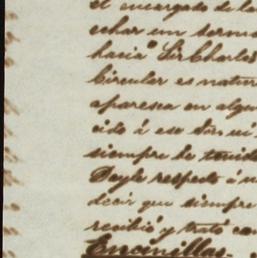 el encargado de la
echar un sermo
hacia Sir Charles
Circular es natur
aparesca en algu
cido á ese
siempre he tenido
Doyle respeto á
decir que siempre
recibió y trató con
Encinillas.